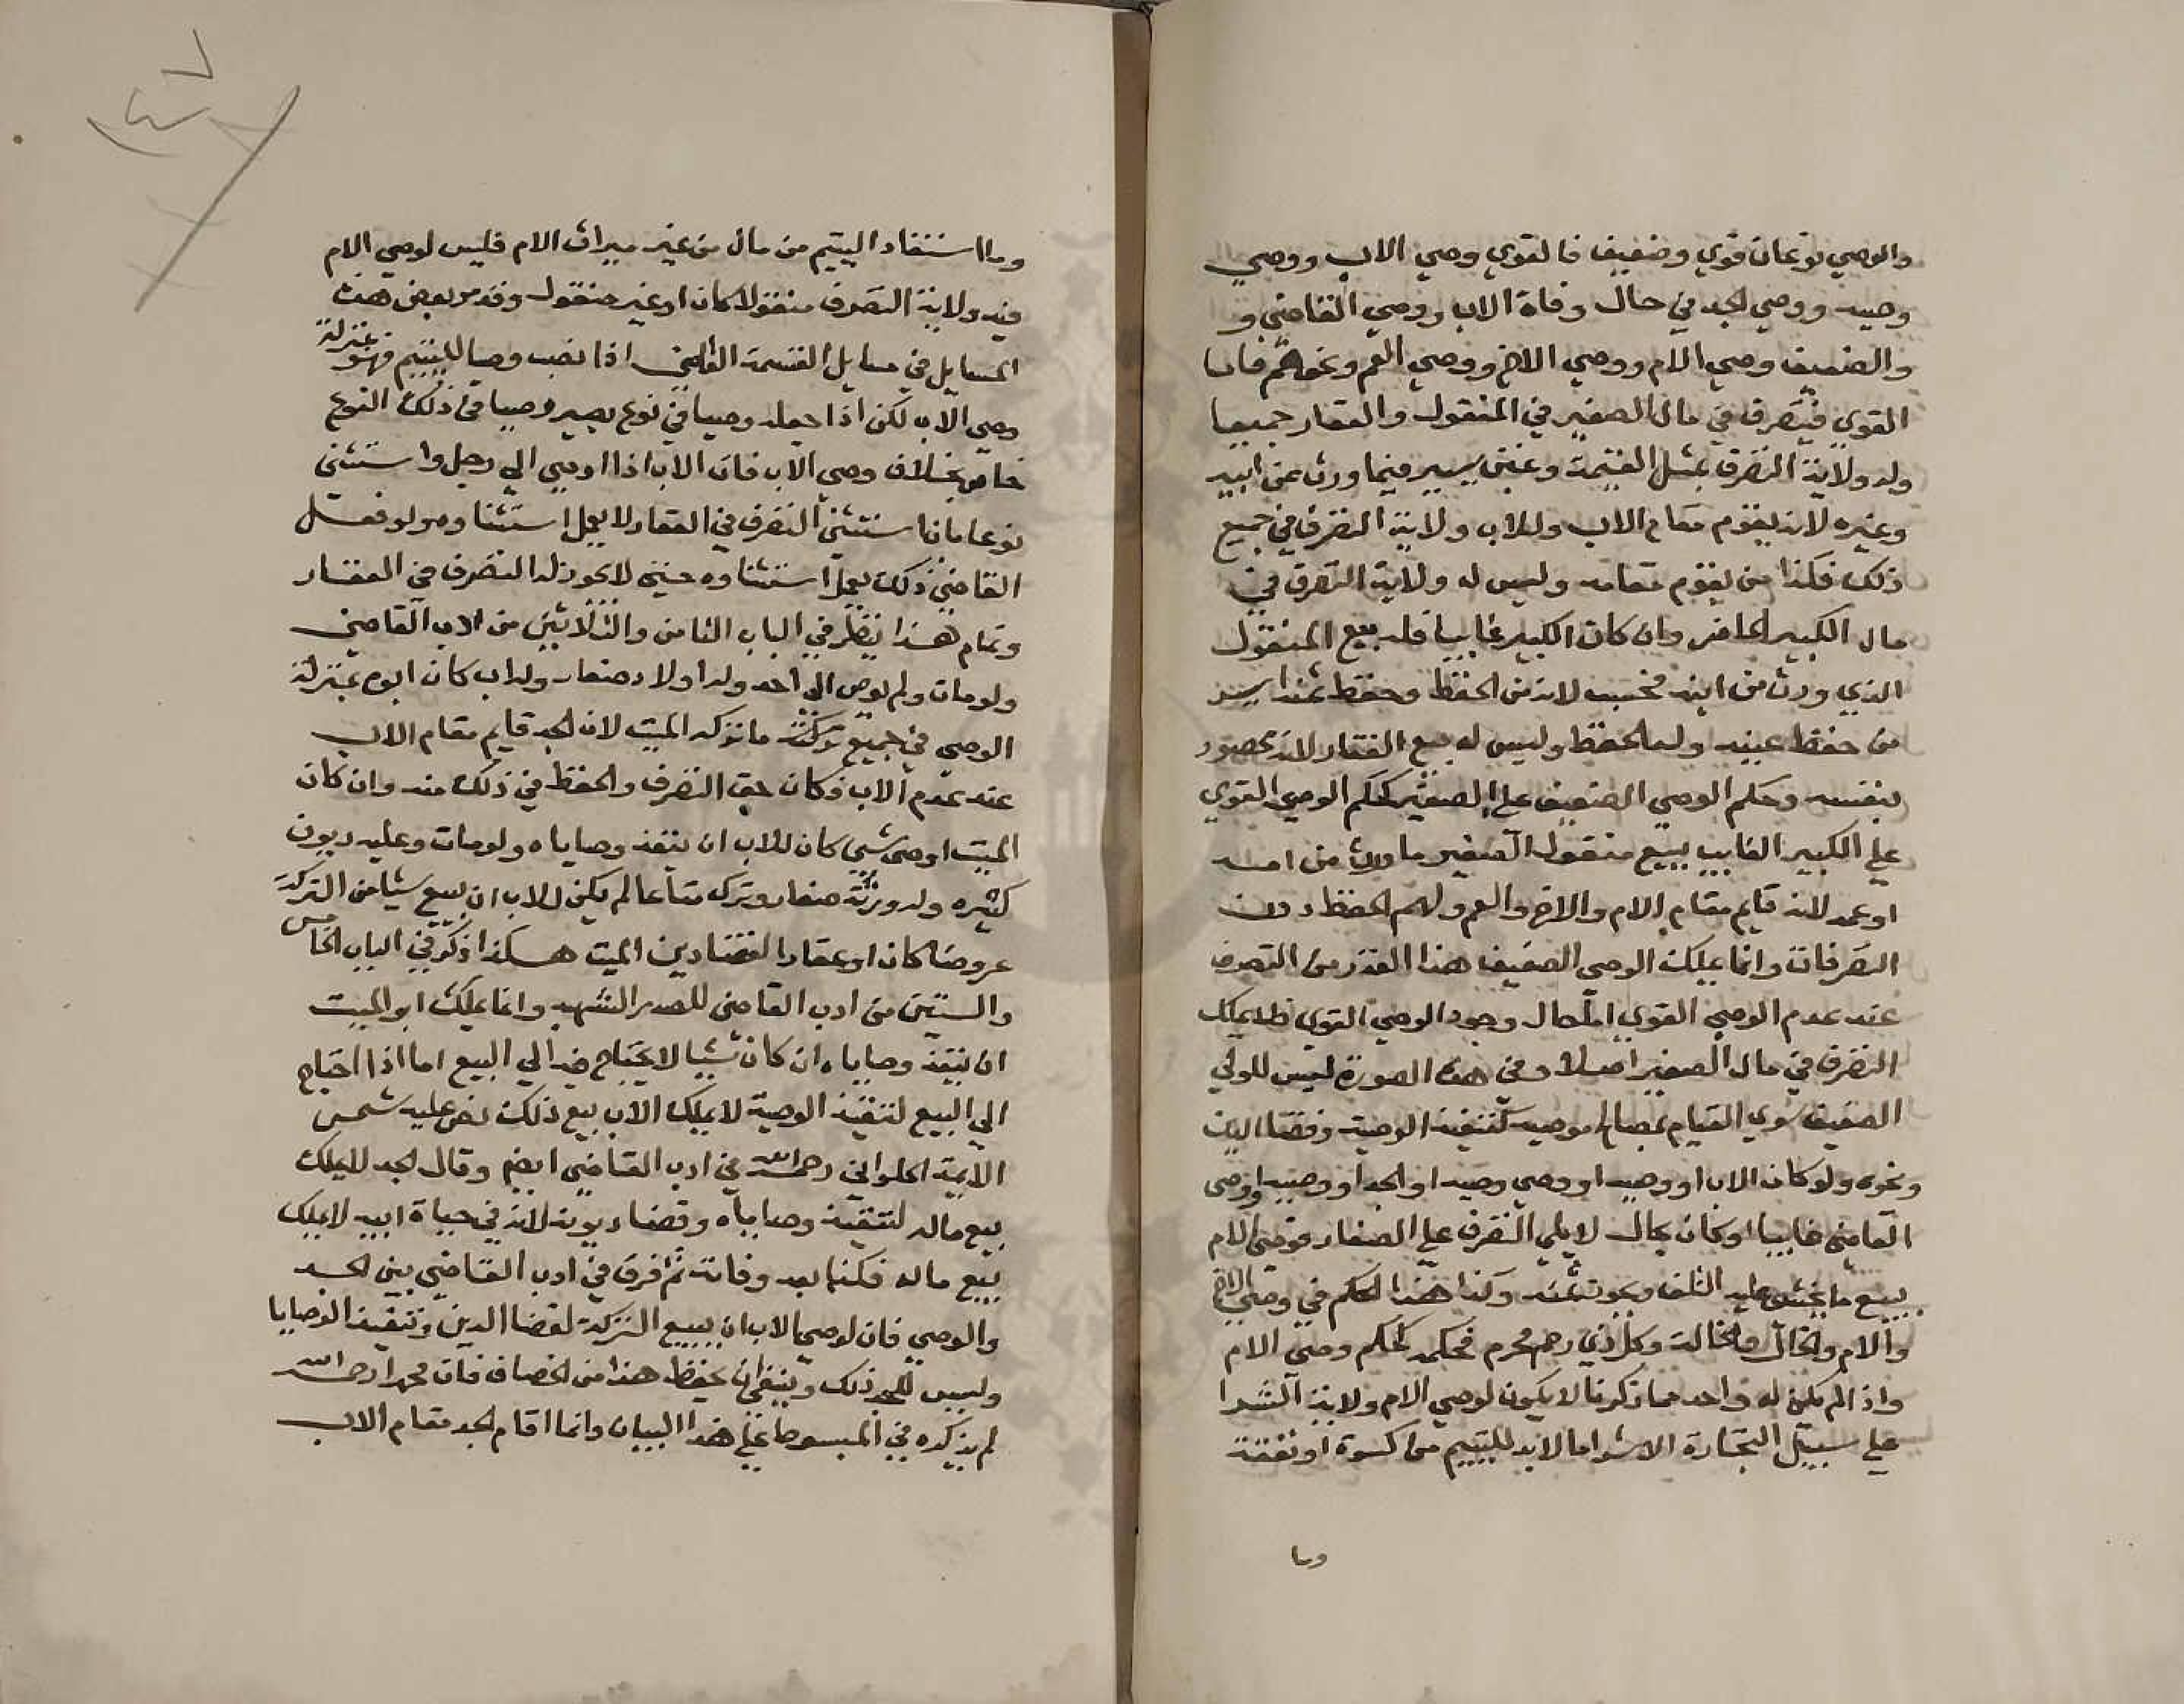 والوصي نوعان قوي وضعيف فالقوي وصي الاب ووصي
وصيه ووصي الجد في حال وفاة الاب ووصي القاضي و
والضعيف وصي الام ووصي الاخ ووصي العم ونحوهم فاما
القوي فيتصرف في مال الصغير في المنقول والعقار جميعا
وله ولاية التصرف بمثل القيمة وغبن يسير فيما ورث عن ابيه
وغيره لانه يقوم مقام الاب وللاب ولاية التصرف في جميع
ذلك فكذا من يقوم مقامه وليس له ولاية التصرف في
مال الكبير الحاضر وان كان الكبير غايبا فله بيع المنقول
الذي ورث من ابيه فحسب لانه من الحفظ وحفظ ثمنه ايسر
من حفظ عينه وله الحفظ وليس له بيع العقار لانه محصور
بنفسه وحكم الوصي الضعيف على الصغير كحكم الوصي القوي
على الكبير الغايب يبيع منقول الصغير ما ورث من امه
او عمه لانه قايم مقام الام والاخ والعم ولهم الحفظ دون
التصرفات وانما يملك الوصي الضعيف هذا القدر من التصرف
عند عدم الوصي القوي اما حال وجود الوصي القوي فلا يملك
التصرف في مال الصغير اصلا وفي هذه الصورة ليس للولي
الضعيف سوي القيام بمصالح موصيه كتنفيذ الوصية وقضا الدين
ونحوه ولو كان الاب او وصيه او وصي وصيه او الجد او وصيه او وصي
القاضي غايبا او كان بحال لا يلي التصرف على الصغار فوصي الام
يبيع ما يخشى عليه التلف ويحوت ثمنه وكذا هذا الحكم في وصي الاخ
والام والخال والخالة وكل ذي رحم محرم فحكمه كحكم وصي الام
واذا لم يكن له واحد مما ذكرنا لا يكون لوصي الام ولاية الشرا
على سبيل التجارة الا شرا ما لا بد لليتيم من كسوة او نفقة
وما
وما استفاد اليتيم من مال من غير ميراث الام فليس لوصي الام
فيه ولاية التصرف منقولا كان او غير منقول وقد مر بعض هذه
المسايل في مسايل القسمة القاضي اذا نصب وصيا لليتيم فهو بمنزلة
وصي الاب لكن اذا جعله وصيا في نوع يصير وصيا في ذلك النوع
خاصة بخلاف وصي الاب فان الاب اذا اوصي الى رجل واستثنى
نوعا مانا استثنى التصرف في العقار لا يعمل استثناوه ولو فعل
القاضي ذلك يعمل استثناوه حينه لا يجوز له التصرف في العقار
وتمام هذا ينظر في الباب الثامن والثلاثين من ادب القاضي
ولو مات ولم يوص الى احد وله اولاد صغار وله اب كان ابوه بمنزلة
الوصي في جميع تركته ما تركه الميت لان الجد قايم مقام الاب
عند عدم الاب فكان حق التصرف والحفظ في ذلك منه وان كان
الميت اوصى بشي كان للاب ان ينفذ وصاياه ولو مات وعليه ديون
كثيره وله ورثة صغار وترك متاعا لم يكن للاب ان يبيع شيا من التركة
عروضا كان او عقارا لقضا دين الميت هكذا ذكر في الباب الخامس
والستين من ادب القاضي للصدر الشهيد وانما يملك ابو الميت
ان ينفذ وصاياه ان كان شيا لا يحتاج فيه الي البيع اما اذا احتاج
الي البيع لتنفيذ الوصية لا يملك الاب بيع ذلك نص عليه شمس
الايمة الحلواني رحمه الله في ادب القاضي ايضا وقال الجد لا يملك
بيع ماله لتنفيذ وصاياه وقضا ديونه لانه في حياة ابيه لا يملك
بيع ماله فكذا بعد وفاته ثم فرق في ادب القاضي بين الجد
والوصي فان لوصي الاب ان يبيع التركة لقضا الدين وتنفيذ الوصايا
وليس للجد ذلك وينبغي ان يحفظ هذا من الخصاف فان محمدا رحمه الله
لم يذكره في المبسوط على هذا البيان وانما اقام الجد مقام الاب